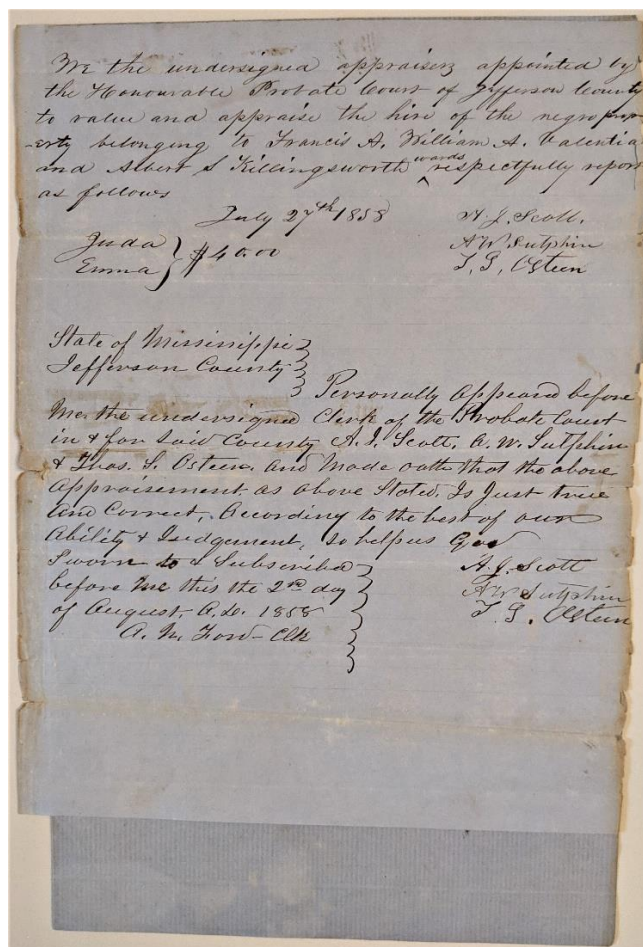 We the undersigned appraisers appointed by
the Honourable Probate Court of Jefferson County
to value and appraise the hire of the negro prop
-erty belonging to Francis A. William A. Valentia
and Albert S Killingsworth wards respectfully report
as follows
July 27th 1858
A. J. Scott.
Juda
Emma } $40.00
A W Sutphin
T. G. Osteen
State of Mississippi
Jefferson County
Personally appeared before
Me the undersigned Clerk of the Probate Court
in & for Said County A. J. Scott. A. W. Sutphin
& Thos. G. Osteen. And Made oath that the above
Appraisement. as above Stated. Is Just true
And Correct, According to the best of our
Ability & Judgement, So help us God
Sworn to & Subscribed
before Me this the 2nd day
of August. A.D. 1858
A. M. Ford - Clk
A. J. Scott
A W Sutphin
T. G. Osteen